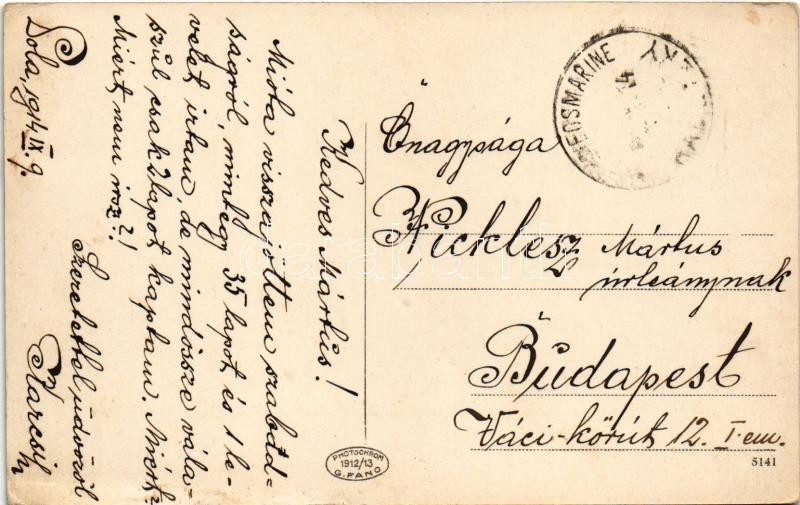 Pola, 1914.IX.9.
Kedves Mártus!
Mióta visszajöttem szabad-
ságról, mintegy 35 lapot és 1 le-
velet irtam, de mindössze vála-
szúl csak 2 lapot kaptam. Miért?
Miért nem irsz?!
Szeretettel üdvözöl
Karcsi
Önagysága
Nicklesz Mártus
úrleánynak
Budapest
Váci-körút 12. I. em.
PHOTOCHROM
1912/13
G. FANO
5141
KRIEGSMARINE
darabanth